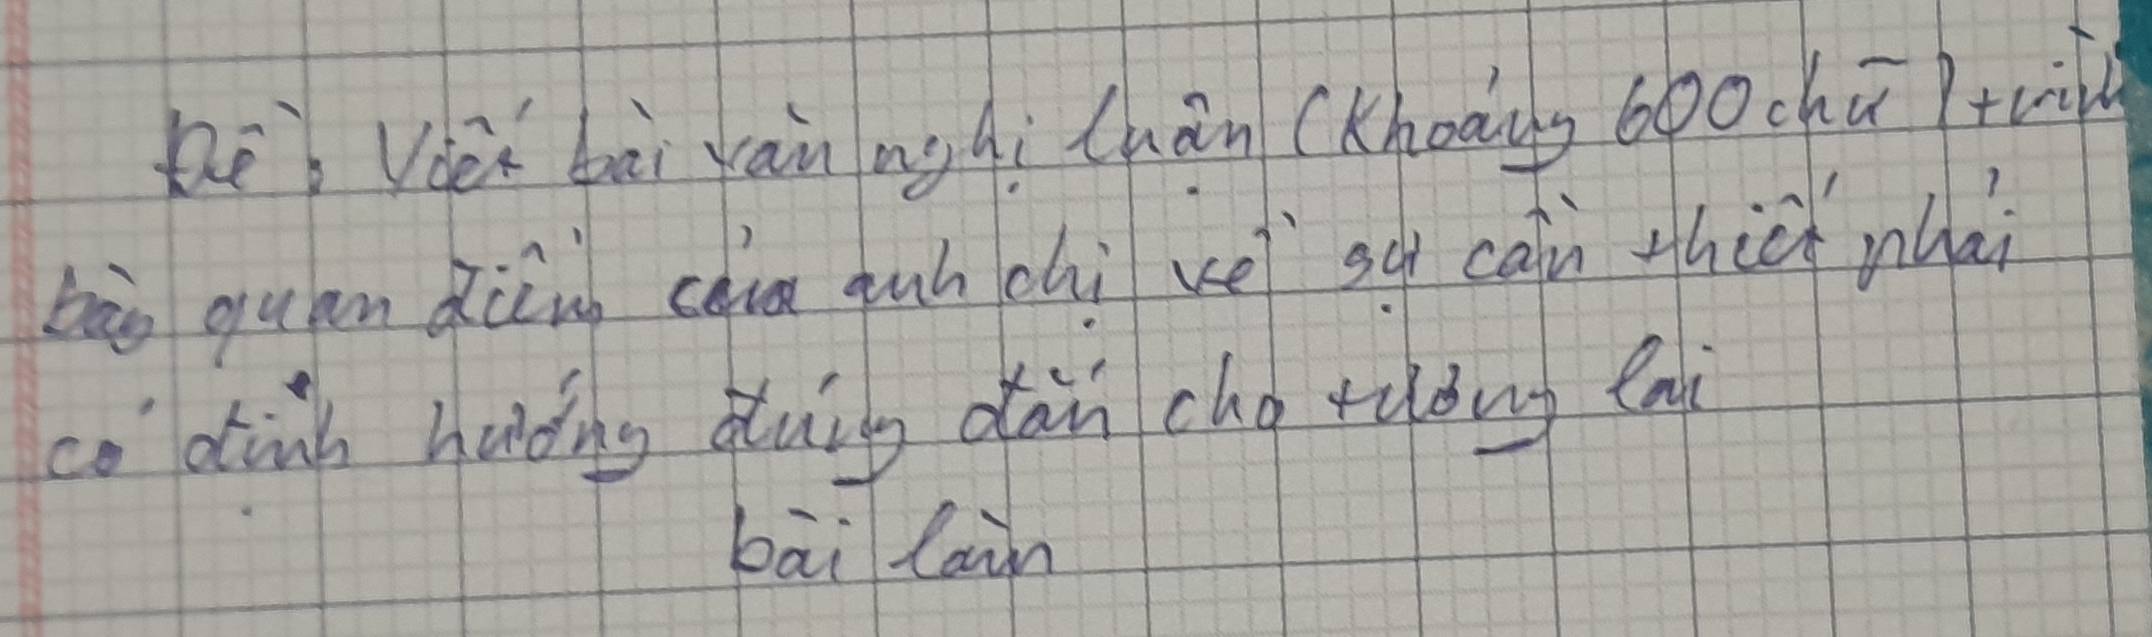 Đề: Viết bài văn nghị luận (Khoảng 600 chữ) trình
bày quan điểm của anh chị về sự cần thiết phải
có định hướng đúng đắn cho tương lai
bài làm